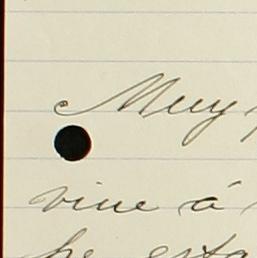 Muy
vine á
he esta